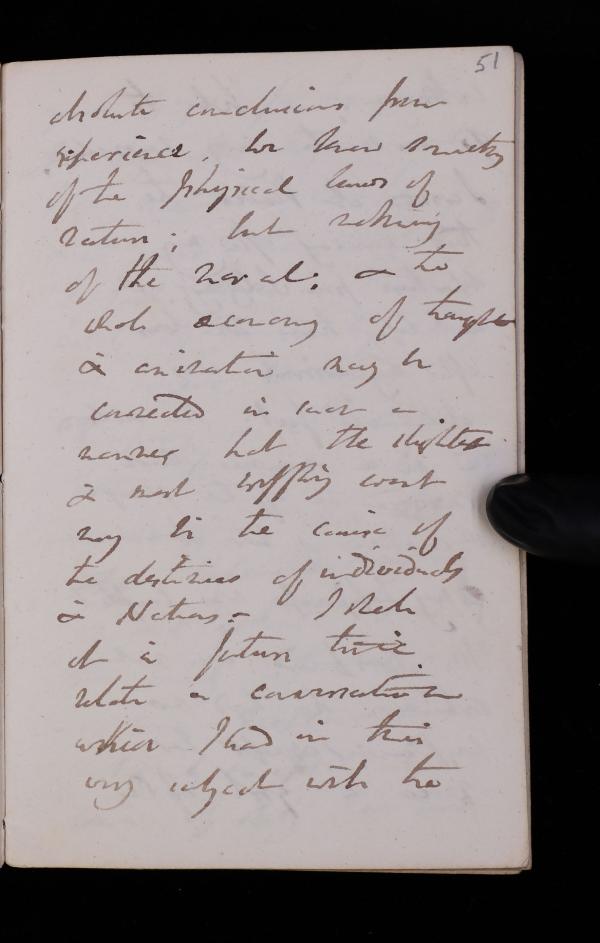 51
absolute conclusions from
experience. We know something
of the physical laws of
nature; but nothing
of the moral; & the
whole economy of thought
& animation may be
connected in such a
manner that the slightest
& most trifling event
may be the cause of
the destinies of individuals
& Nations. - I shall
at a future time
relate a conversation
which I had on this
very subject with the